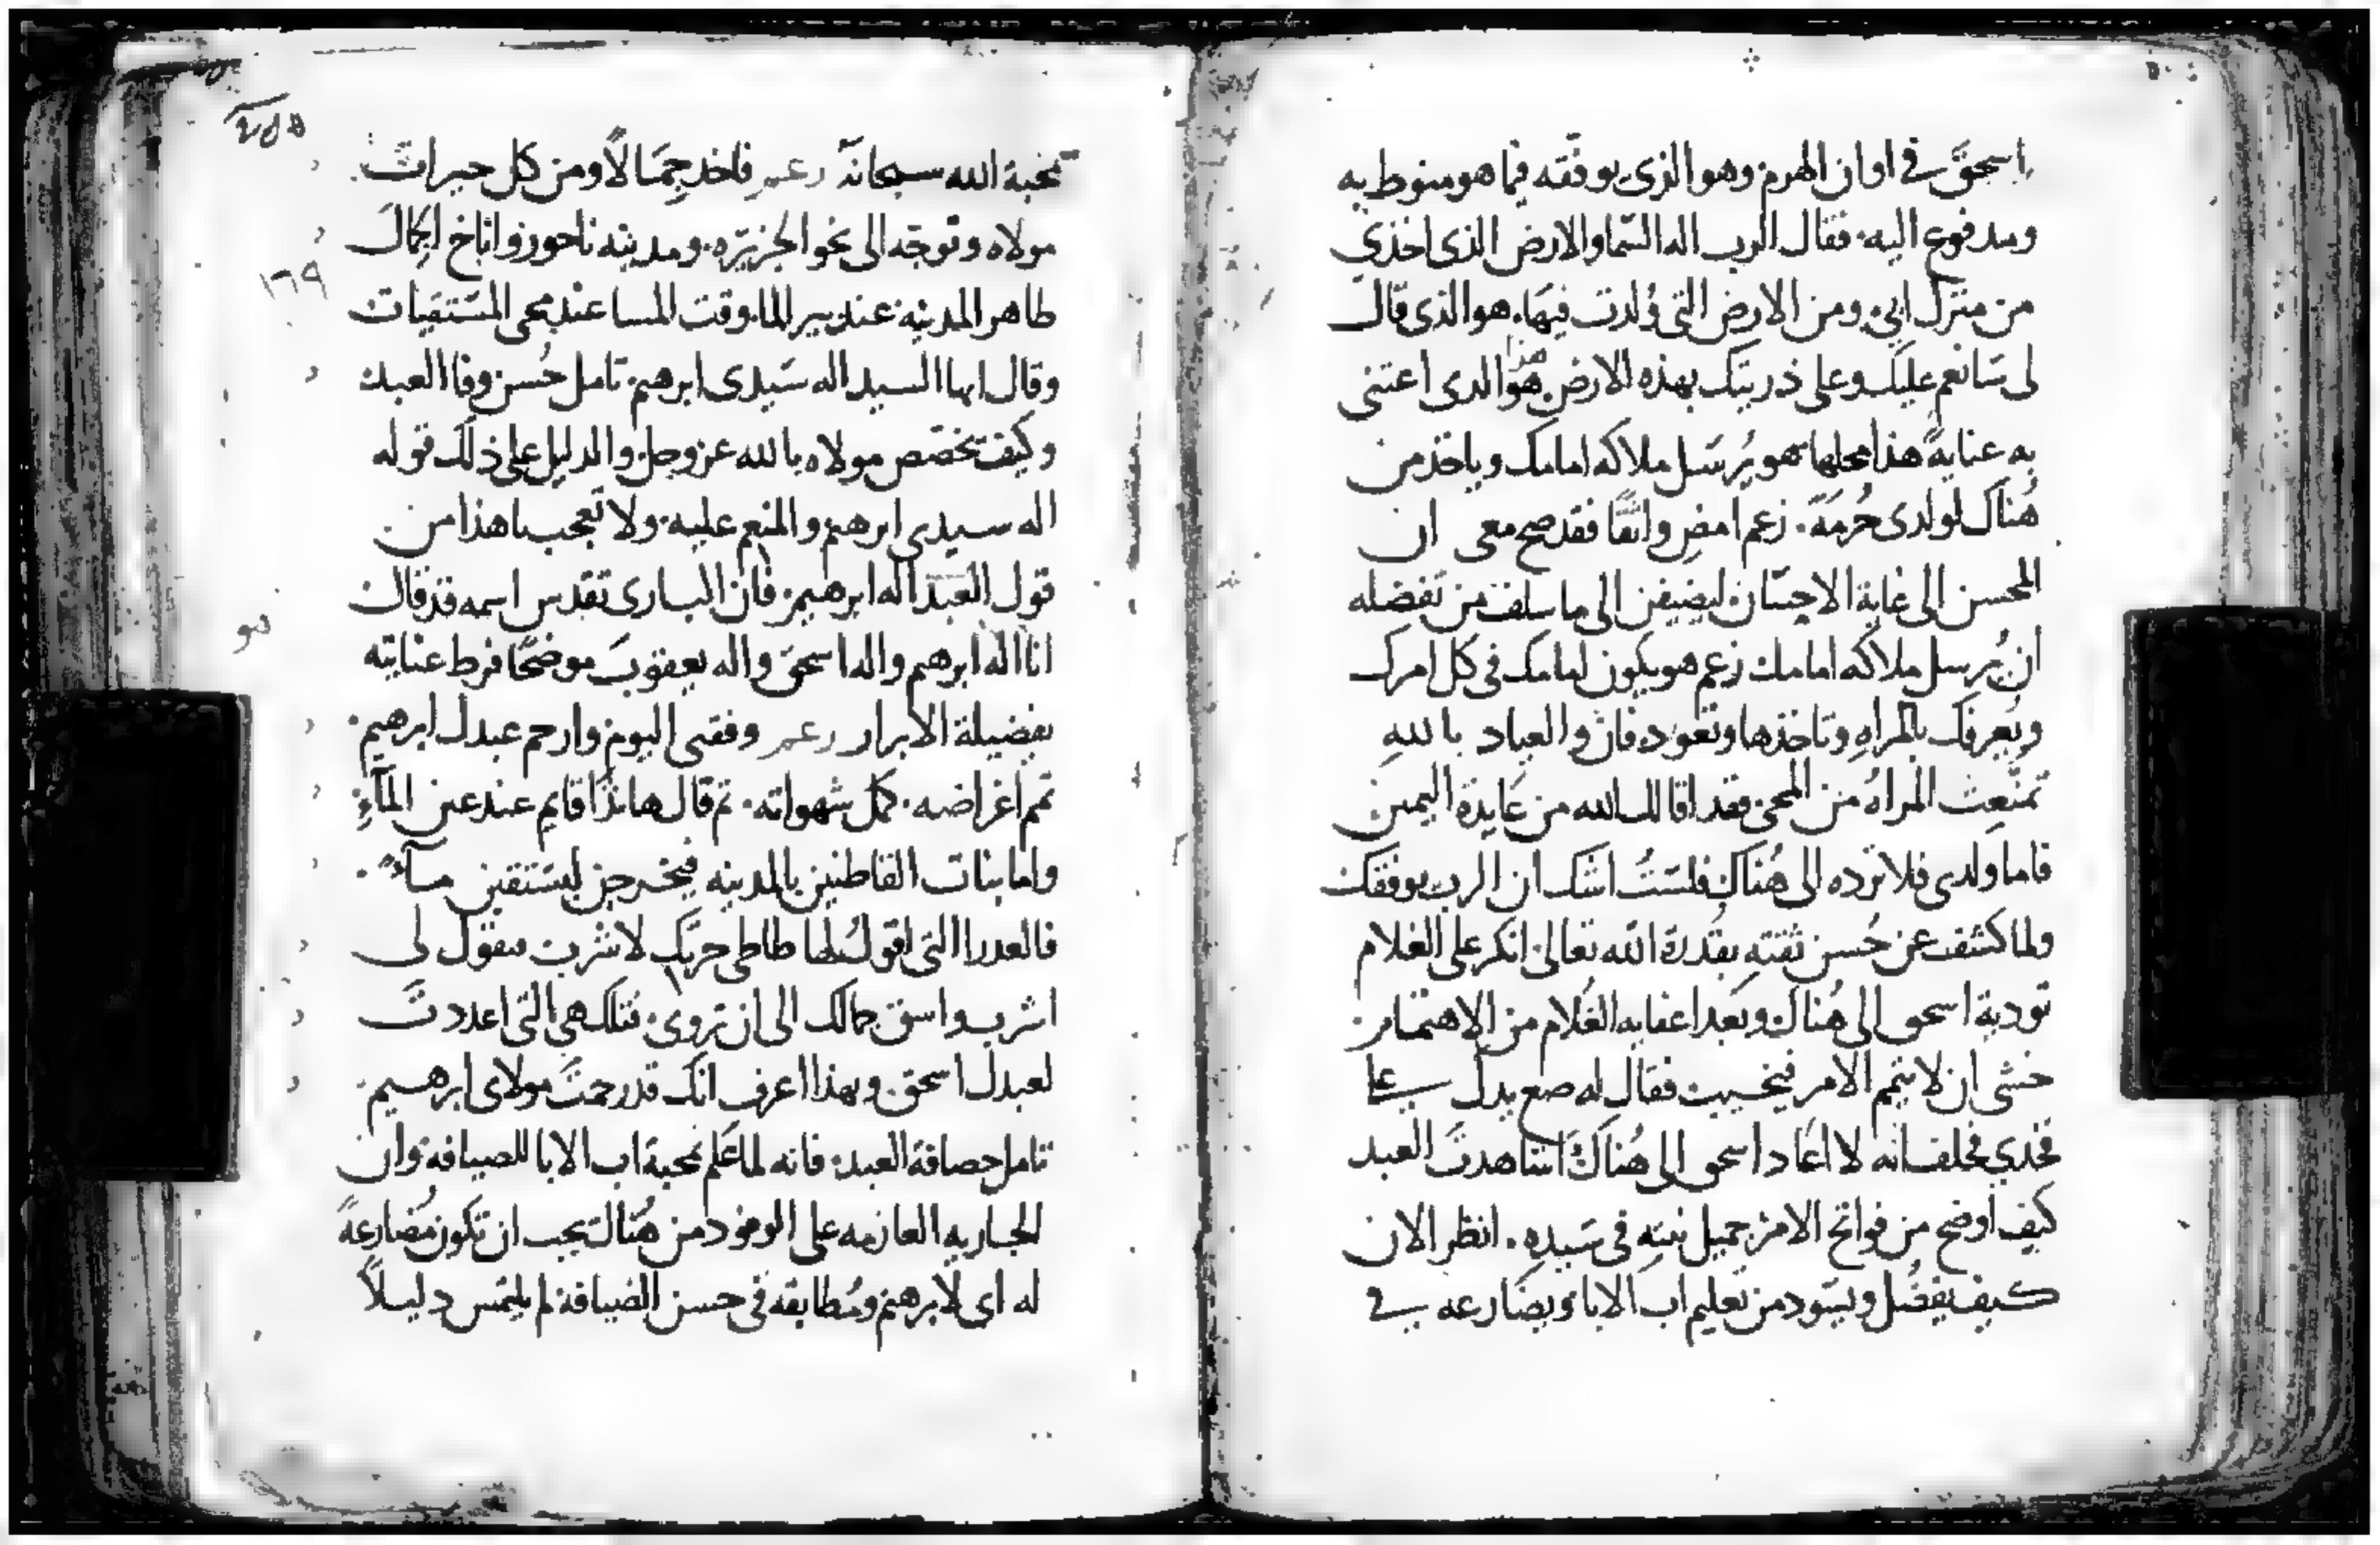 باسحق في اوان الهرم وهو الذي يوفقه فيما هو منوط به
ومدفوع اليه. فقال الرب اله السما والارض الذي اخذني
من منزل ابي. ومن الارض التي وُلدت فيها. هو الذي قال
لي سانعم عليك وعلى ذريتك بهذه الارض هذا هو الدي اعتنى
به عناية هذا محلها هو يُرسل ملاكه امامك وياخذ من
هُناك لولدي حُرمة. زعم امض واثقًا فقد صح معى ان
المحسن الى غاية الاحسان ليضيفن الى ما سلف من تفضله
ان يُرسل ملاكه امامك زعم هو يكون امامك في كل امرك
ويعرفك بالمراه وتاخذها وتعود فان والعياد بالله
تمنّعت المراه من المجى فقد اقالك الله من عايدة اليمين
فاما ولدي فلا ترده الى هُناك فلستُ اشك ان الرب يوفقك
ولما كشف عن حُسن ثقته بقُدرة الله تعالى انكر على الغلام
تودية اسحق الى هُناك وبعد اعفايه الغُلام من الاهتمام
خشي ان لا يتم الامر فيخيب فقال له صع يدك على
فخدي فحلف انه لا اعاد اسحق الى هُناك اشاهدت العبد
كيف اوضح من فواتح الامر جميل نيته في سيده. انظر الان
كيف يفضُل ويسود من تعليم اب الابا ويضارعه في
محبة الله سبحانه زعم فاخد جمالًا ومن كل خيرات
مولاه وتوجّه الى نحو الجزيره. ومدينه ناحور واناخ الجمال
ظاهر المدينه عند بير الما. وقت المسا عند مجى المستقيات
وقال ايها السيد اله سيدي ابرهيم تامل حُسن وفا العبد
وكيف تخصص مولاه بالله عز وجل والدليل على ذلك قوله
اله سيدي ابرهيم والمنعم عليه. ولا تعجب يا هذا من
قول العبد اله ابرهيم. فان الباري تقدس اسمه قد قال
انا اله ابرهيم واله اسحق واله يعقوب موضحًا فرط عنايته
بفضيلة الابرار زعم وفقني اليوم وارحم عبدك ابرهيم
تمم اغراضه. كمل شهواته. تم قال هانذا قايم عند عين المآءِ
واما بنات القاطنين بالمدينه فيخرجن ليستقين مآءً.
فالعدرا التي اقول لها طاطي جرتك لاشرب فتقول لي
اشرب واسق جمالك الى ان تروى. فتلك هي التي اعددت
لعبدك اسحق. وبهذا اعرف انك قد رحمت مولاي ابرهيم
تامل حصافة العبد. فانه لما علم محبة اب الابا للضيافة وان
الجاريه العازمه على الوفود من هُناك يجب ان تكون مُضارعةً
له اي لابرهيم ومُطابقه في حسن الضيافة لم يلتمس دليلًا
١٦٩
هو